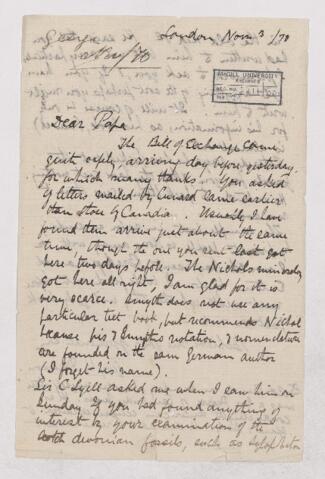 George
London Nov 3/70
McGILL UNIVERSITY
ARCHIVES
ACC. NO.
REF.
Dear Papa
The Bill of Exchange came
quit safely, arriving day before yesterday,
for which many thanks. You asked
if letters mailed by Cunard came earlier
than those by Canadian. Usually I have
found them arrive just about the same
time, though the one you sent last got
here two days before. The Nichols mineralogy
got here all right, I am glad for it is
very scarce. Smyth does not use any
particular text book, but recommends Nichol
because his & Smyths notation, & nomenclature
are founded on the same German author
(I forget his name).
Sir C Lyell asked me when I saw him on
Sunday if you had found anything of
interest by your examination of the
devonian fossils, such as Psilophyton